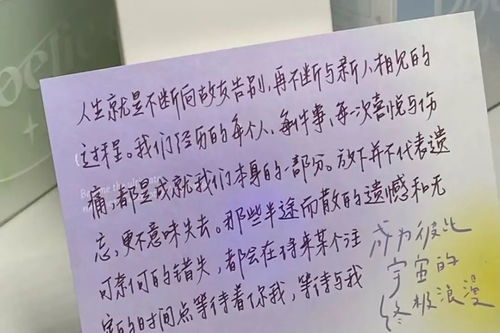 Poetic
人生就是不断向故友告别,再不断与新人相见的
过程。我们经历的每个人、每件事、每次喜悦与伤
痛,都是成就我们本身的一部分。放下并不代表遗
忘,更不意味失去。那些半途而散的遗憾和无
可奈何的错失,都会在将来某个注
定的时间点等待着你我,等待与我
成为彼此
宇宙的
终极浪漫